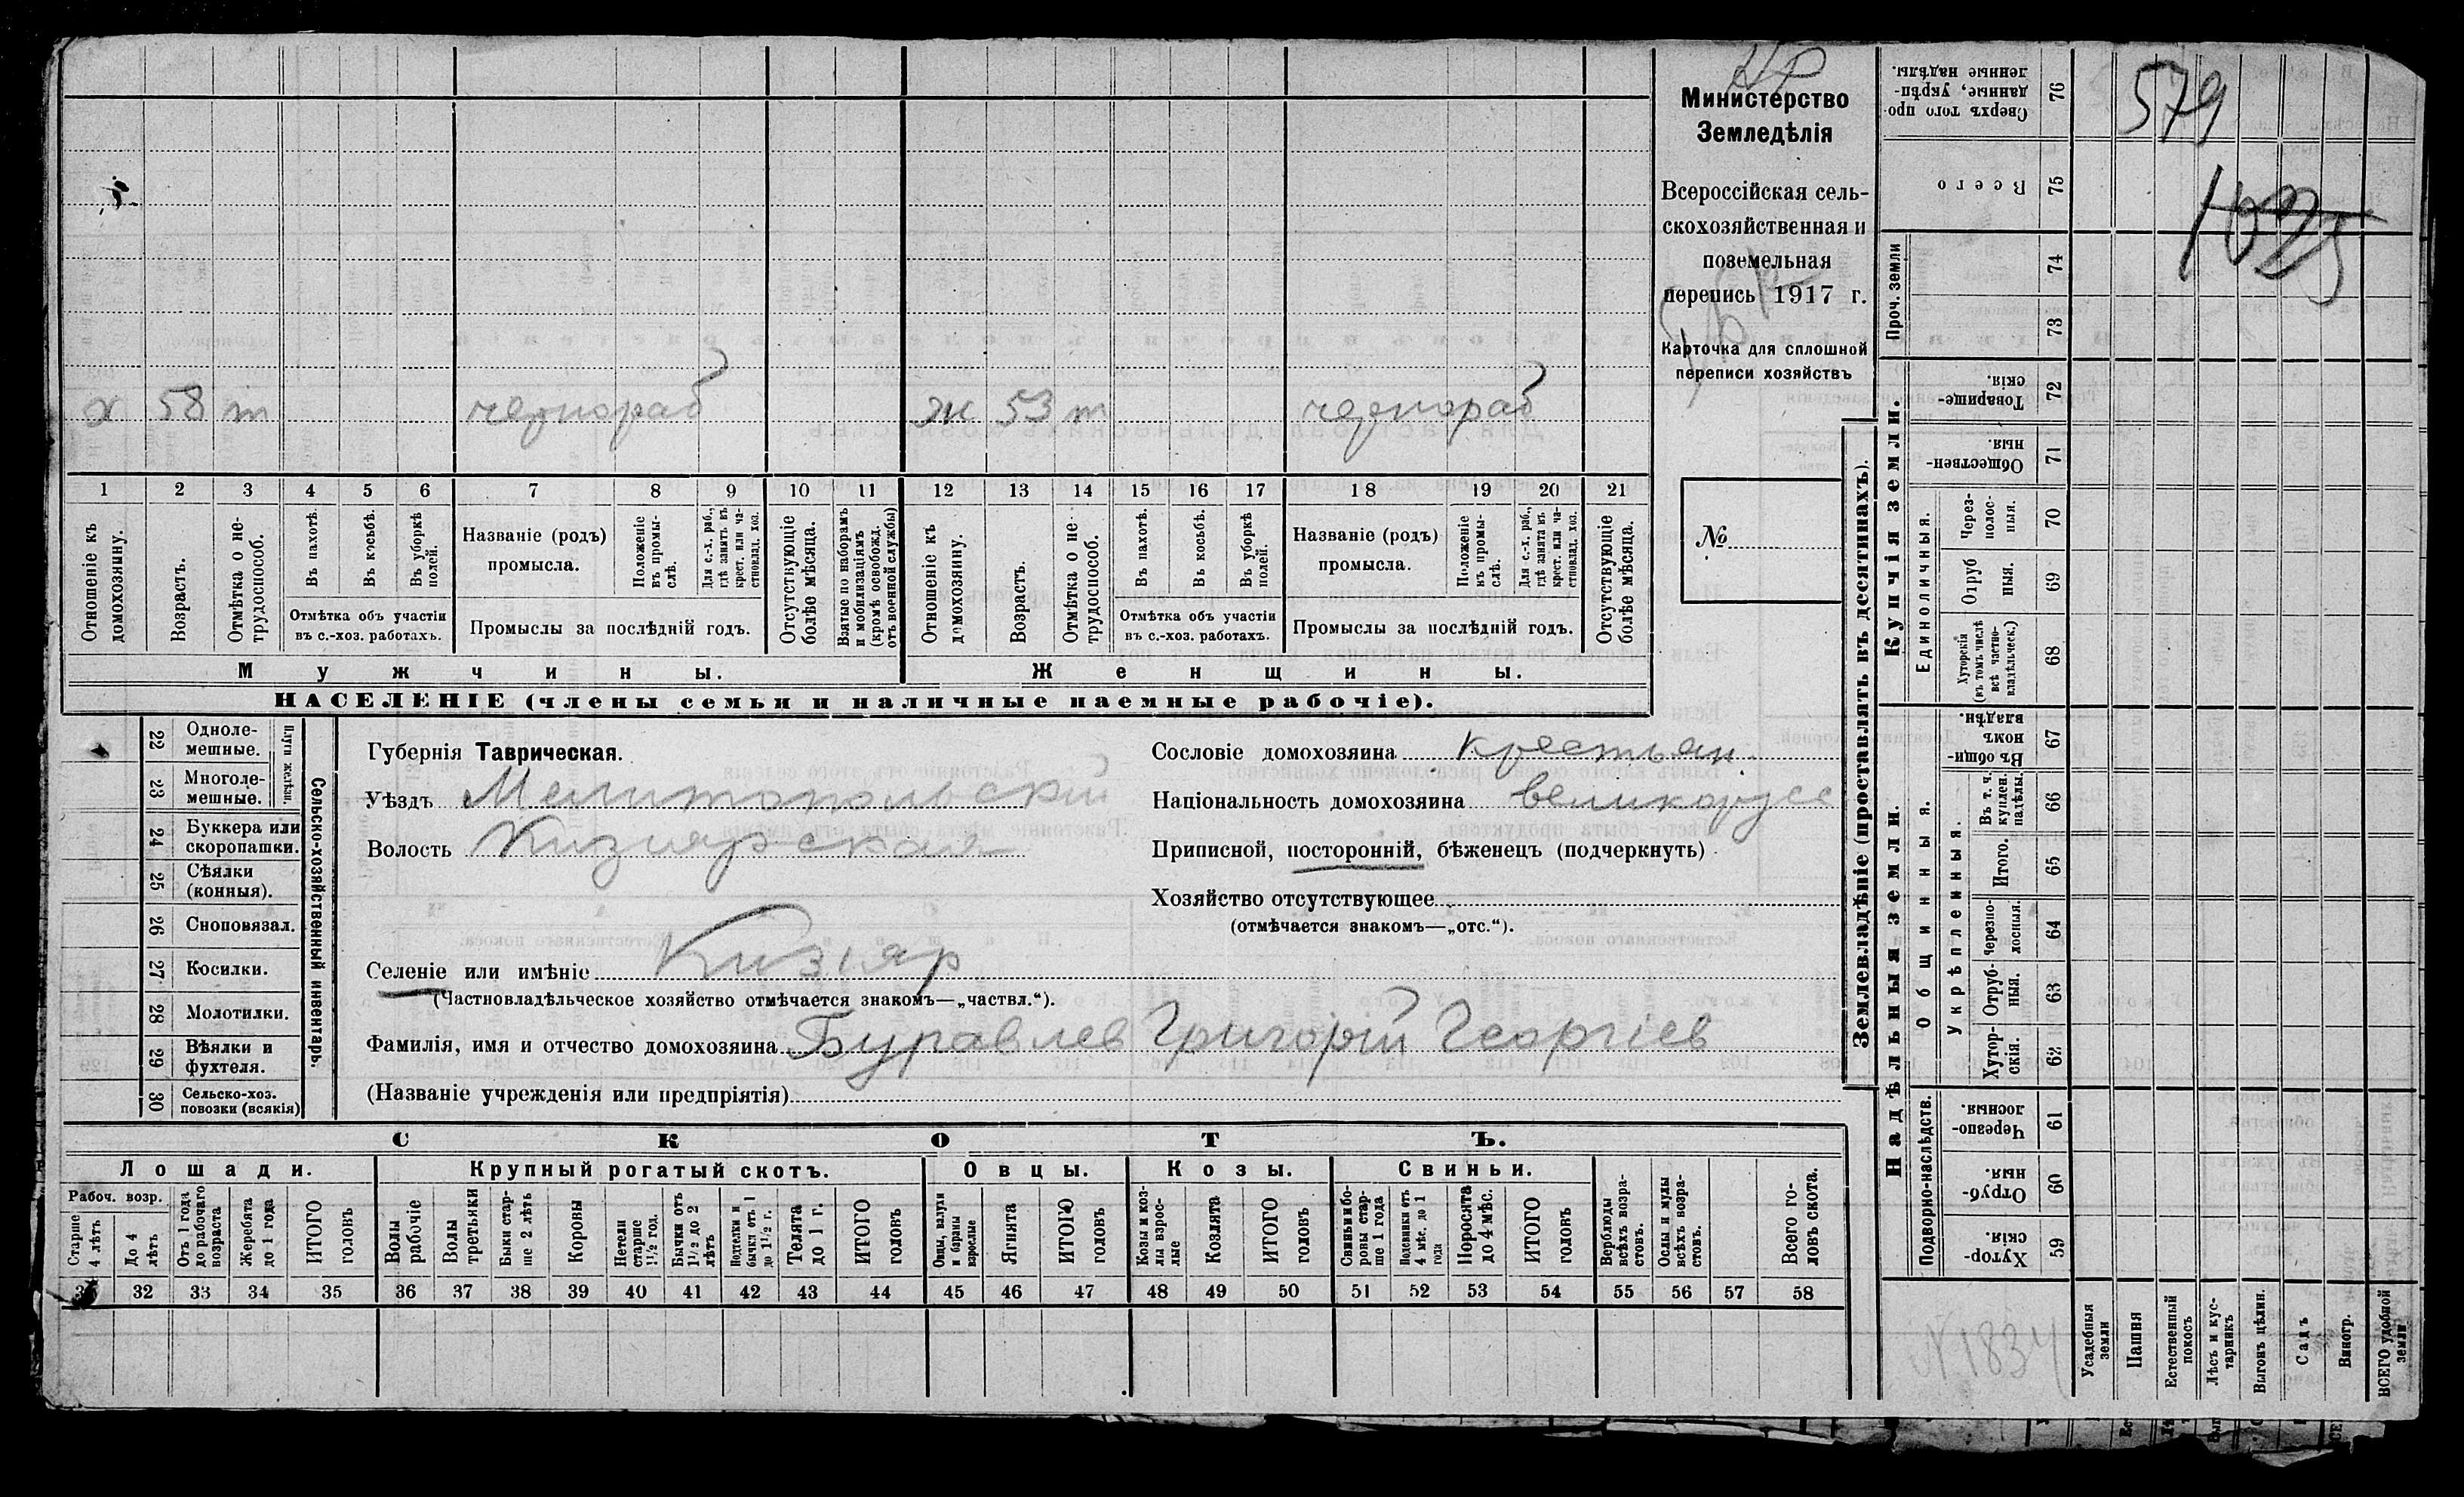 Нр
Министерство
Земледѣлія
Всероссійская сель-
скохозяйственная и
поземельная
перепись 1917 г.
Карточка для сплошной
переписи хозяйствъ
№
х 58 т чернораб ж 53 т чернораб
1 2 3 4 5 6 7 8 9 10 11 12 13 14 15 16 17 18 19 20 21
Отношеніе къ домохозяину.
Возрастъ.
Отмѣтка о не-трудоспособ.
Въ пахотѣ.
Въ косьбѣ.
Въ уборкѣ полей.
Отмѣтка объ участіи
въ с.-хоз. работахъ.
Названіе (родъ)
промысла.
Положеніе въ промы-слѣ.
Для с.-х. раб., гдѣ занятъ въ крест. или ча-стновлад. хоз.
Промыслы за послѣдній годъ.
Отсутствующіе болѣе мѣсяца.
Взятые по наборамъ и мобилизаціямъ (кромѣ освобожд. отъ военной службы)
Отношеніе къ домохозяину.
Возрастъ.
Отмѣтка о не трудоспособ.
Въ пахотѣ.
Въ косьбѣ.
Въ уборкѣ полей.
Отмѣтка объ участіи
въ с.-хоз. работахъ.
Названіе (родъ)
промысла.
Положеніе въ промы-слѣ.
Для с.-х. раб., гдѣ занята въ крест. или ча-стновлад. хоз.
Промыслы за послѣдній годъ.
Отсутствующіе болѣе мѣсяца.
Мужчины.
Женщины.
НАСЕЛЕНІЕ (члены семьи и наличные наемные рабочіе).
22 Одноле-мешные.
23 Многоле-мешные.
Плуги желѣзн.
24 Буккера или скоропашки.
25 Сѣялки (конныя).
26 Сноповязал.
27 Косилки.
28 Молотилки.
29 Вѣялки и фухтеля.
30 Сельско-хоз. повозки (всякія)
Сельско-хозяйственный инвентарь.
Губернія Таврическая.
Уѣздъ Мелитопольскій
Волость Кизиярская
Сословіе домохозяина крестьян.
Національность домохозяина великорусс
Приписной, посторонній, бѣженецъ (подчеркнуть)
Хозяйство отсутствующее
(отмѣчается знакомъ—„отс.“).
Селеніе или имѣніе Кизіяр
(Частновладѣльческое хозяйство отмѣчается знакомъ—„частвл.“).
Фамилія, имя и отчество домохозяина Буравлев Григорій Георгіев
(Названіе учрежденія или предпріятія)
СКОТЪ.
Лошади. Крупный рогатый скотъ. Овцы. Козы. Свиньи.
Рабоч. возр.
Старше 4 лѣтъ
До 4 лѣтъ
Отъ 1 года до рабочаго возраста
Жеребята до 1 года
ИТОГО головъ
Волы рабочіе
Волы третьяки
Быки стар-ше 2 лѣтъ
Коровы
Нетели старше 1½ год.
Бычки отъ 1½ до 2 лѣтъ
Подтелки и бычки отъ 1 до 1½ г.
Телята до 1 г.
ИТОГО головъ
Овцы, валухи и бараны взрослые
Ягнята
ИТОГО головъ
Козы и коз-лы взрос-лые
Козлята
ИТОГО головъ
Свиньи и бо-ровы стар-ше 1 года
Подсвинки отъ 4 мѣс. до 1 года
Поросята до 4 мѣс.
ИТОГО головъ
Верблюды всѣхъ возра-стовъ.
Ослы и мулы всѣхъ возра-стовъ.
Всего го-ловъ скота.
32 33 34 35 36 37 38 39 40 41 42 43 44 45 46 47 48 49 50 51 52 53 54 55 56 57 58
Землевладѣніе (проставлять въ десятинахъ).
Сверхъ того про-данные, укрѣп-ленные надѣлы. 76
Всего 75
Проч. земли
74
73
Купчія земли.
Товарище-скія. 72
Обществен-ныя. 71
Единоличныя.
Через-полос-ныя. 70
Отруб ныя. 69
Хуторскія (въ томъ числѣ всѣ частно-владѣльческ.) 68
Надѣльныя земли.
Общинныя.
Въ общин номъ владѣн. 67
Укрѣпленныя.
Въ т. ч. куплен. надѣлы. 66
Итого. 65
Черезпо-лосныя. 64
Отруб-ныя. 63
Хутор-скія. 62
Подворно-наслѣдств.
Черезпо-лосныя. 61
Отруб-ныя 60
Хутор-скія. 59
Усадебныя земли
Пашня
Естественный покосъ
Лѣсъ и кус-тарникъ
Выгонъ цѣлин.
Садъ
Виногр.
ВСЕГО удобной земли
579
1025
N 1834